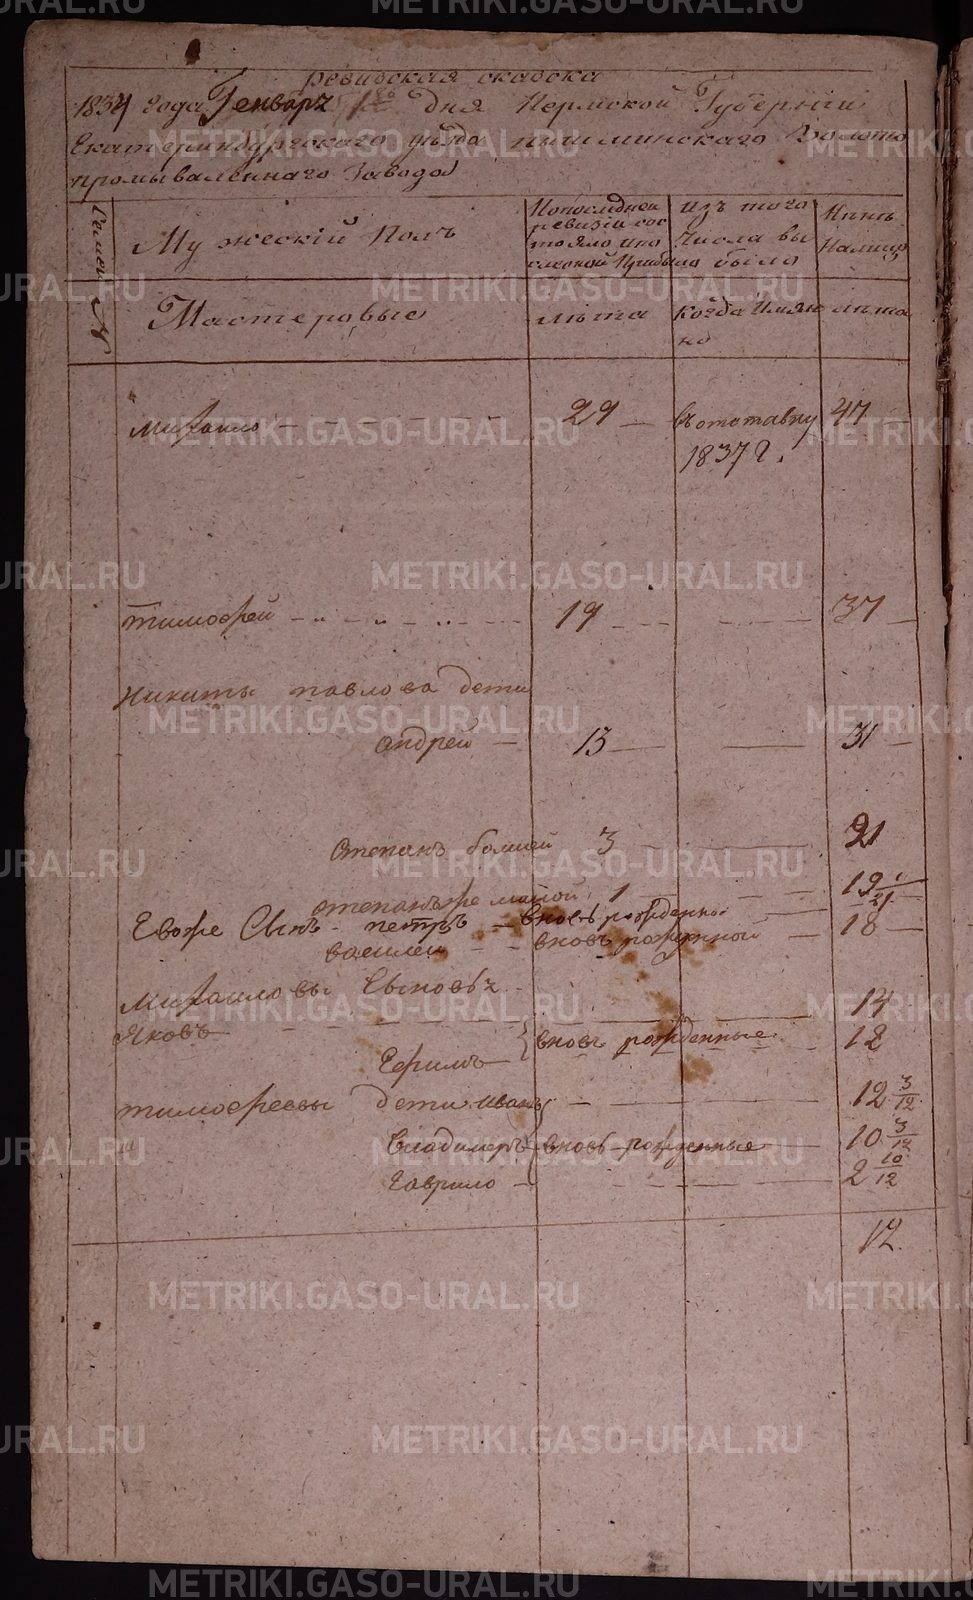 Ревизская сказка
1834 года Генваря 1го дня Пермской Губернии
Екатеринбургскаго уѣзда пышминскаго Золото
промываленнаго Завода
Семей № | Мужескій Полъ | Попоследней ревизіи сос тояло ипо слеоной Прибыло | Изъ того числа вы было | Нынѣ Налицо
Мастеровые | лѣта | Когда Имян но | лѣта
Михаило | 29 | Въ отставку 1837 г. | 47
тимофей | 19 | 37
Никиты павлова дети
андрей | 13 | 31
Степанъ болшей | 3 | 21
степанъ же малой | 1 | 19
Евоже Сынъ петръ вновь рожденной
василей вновь рожденной | 18
Михаиловы Сыновья
Яковъ | 14
Ефимъ | вновь рожденные | 12
тимофеевы дети иванъ | 12 3/12
Владимеръ | вновь рожденные | 10 3/12
Гаврило | 2 10/12
12
METRIKI.GASO-URAL.RU